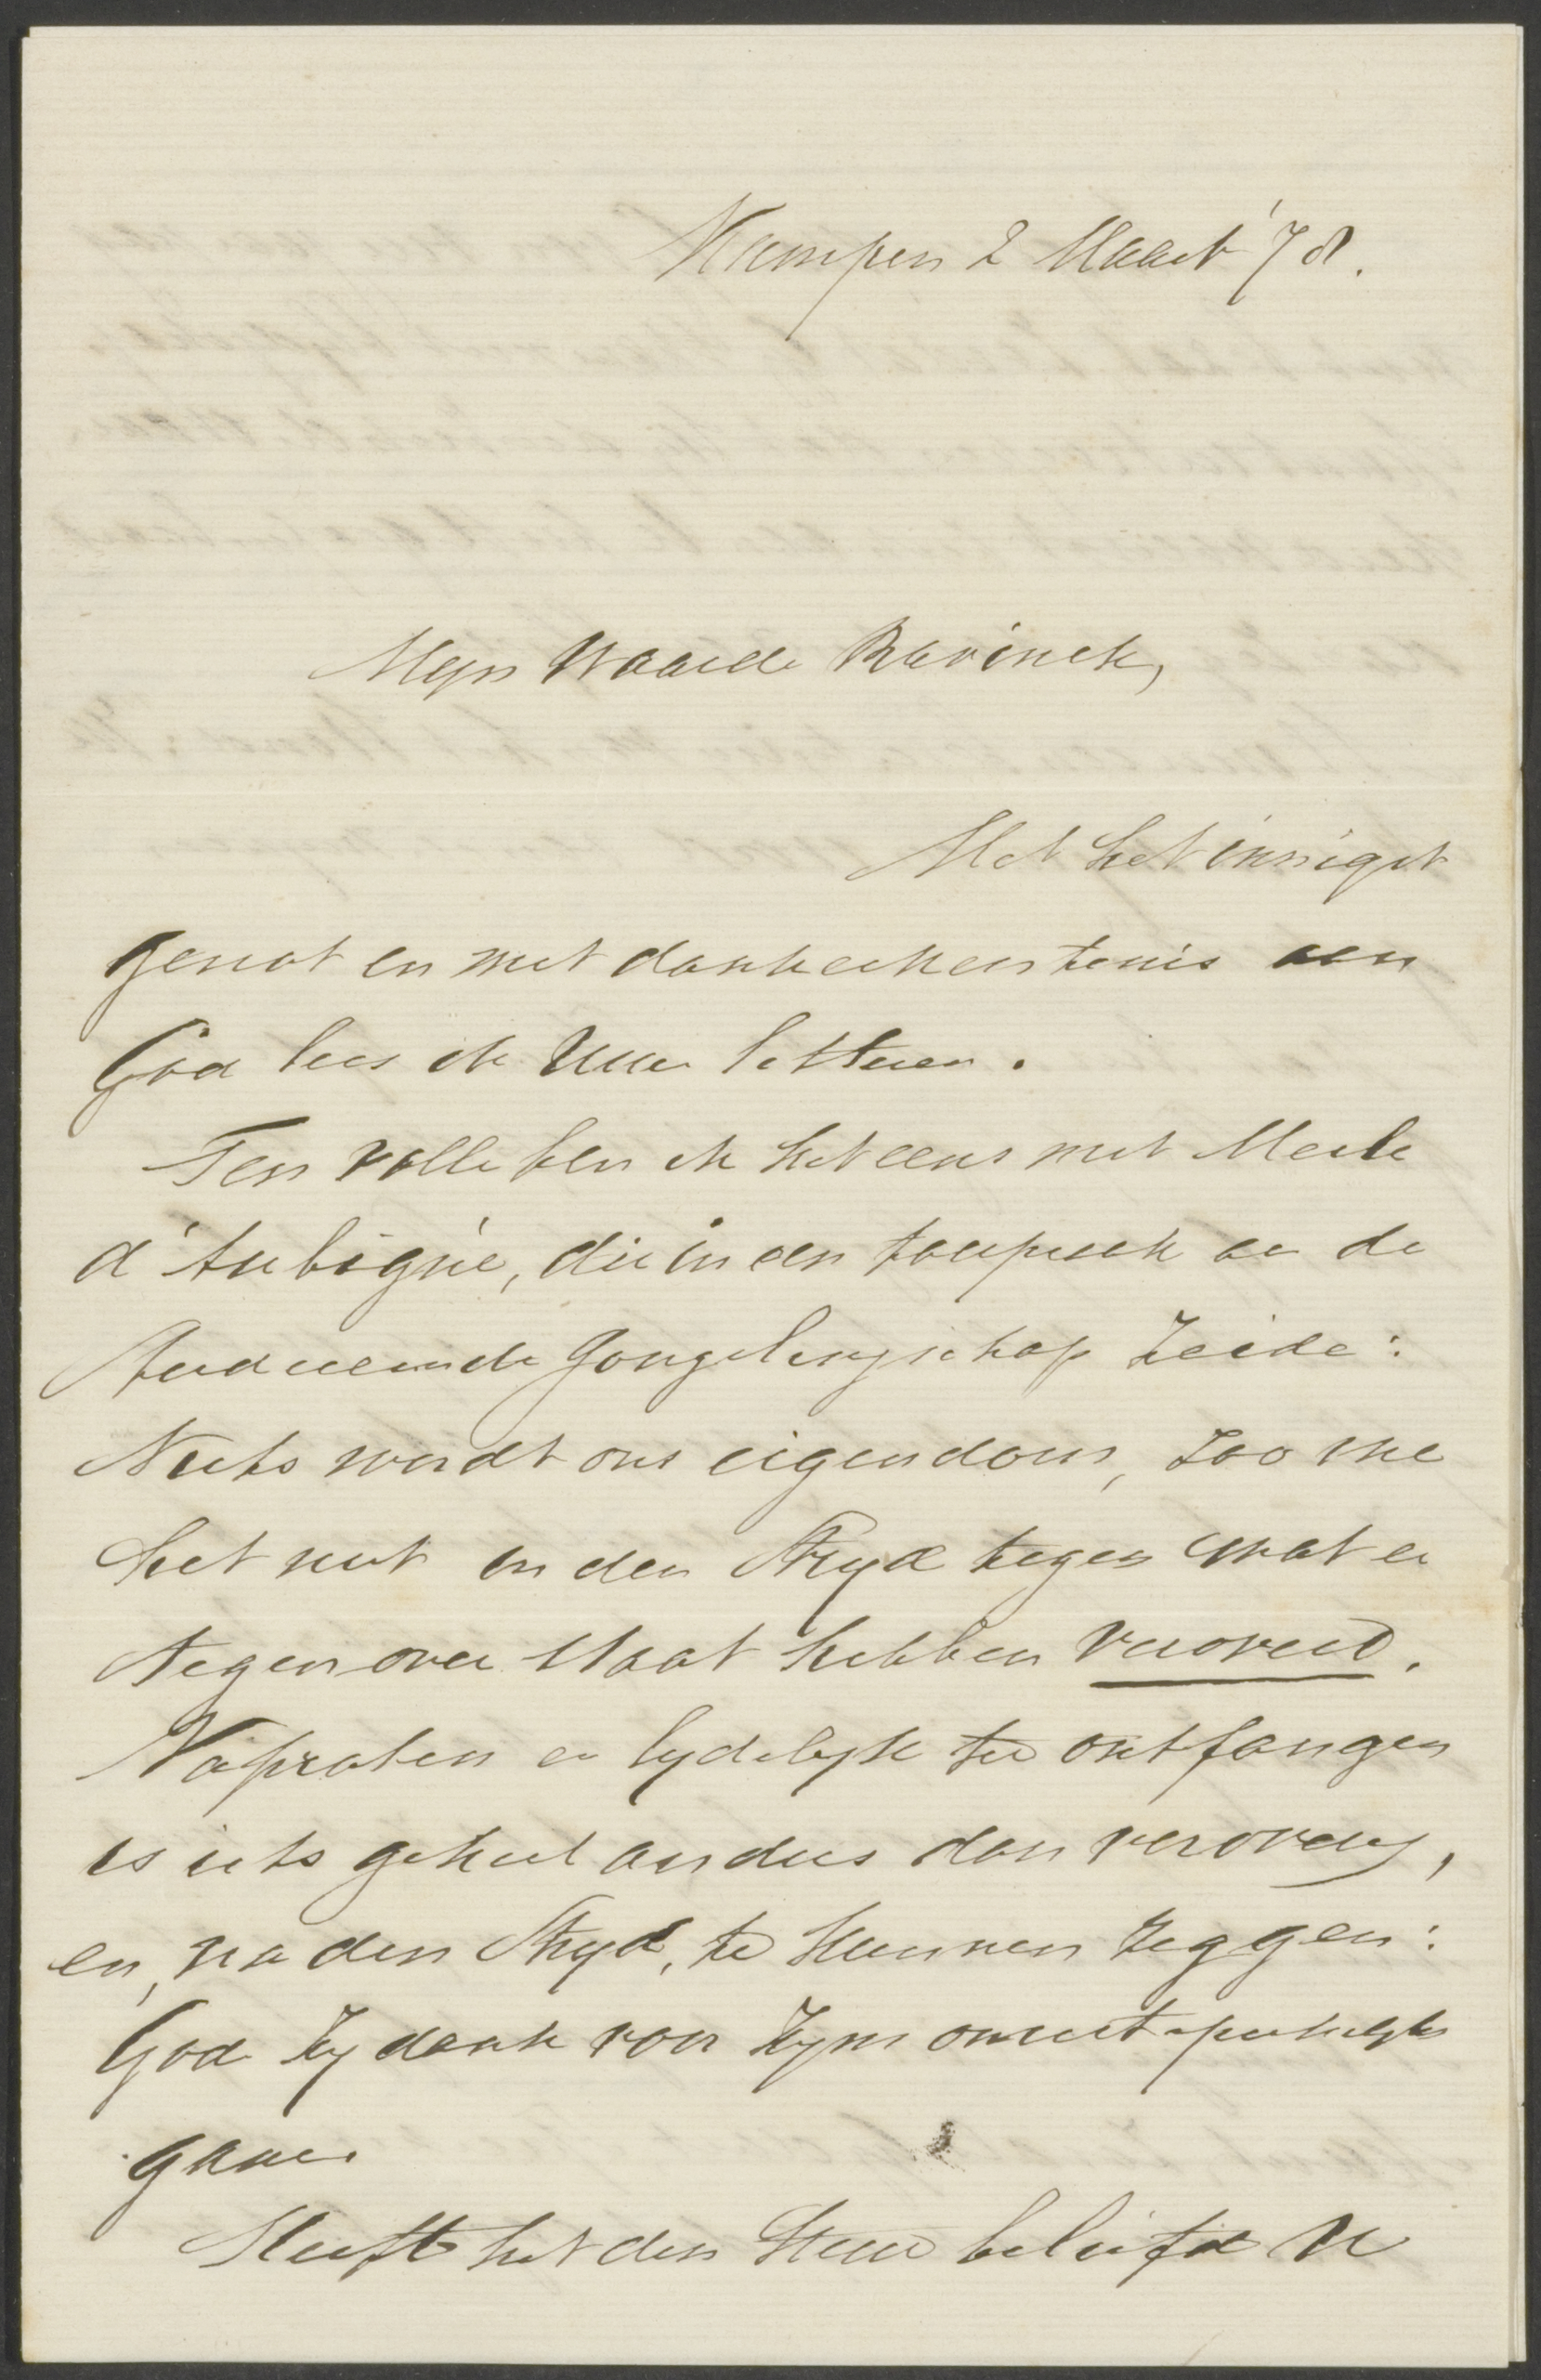 Kampen 2 Maart '78.
Mijn Waarde Bavinck,
Met het innigst
genot en met dankerkentenis aan
God lees ik Uwe letteren.
Ten volle ben ik het eens met Merle
d'Aubigné, die in een toespraak aan de
studeerende Jongelingschap zeide:
Niets wordt ons eigendom, zoo we
het niet in den stryd tegen wat er
tegenover staat hebben veroverd.
Napraten en lydelyk te ontfangen
is iets geheel anders dan veroveren,
en, na den stryd, te kunnen zeggen:
God zy dank voor Zyne onuitsprekelyke
gave.
Heeft het den Heere beliefd U